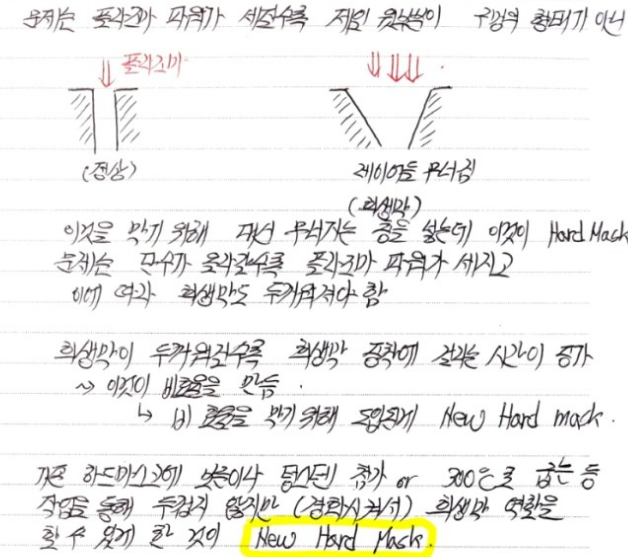 문제는 플라즈마 파워가 세질수록 제일 윗부분이 구멍의 형태가 아닌
플라즈마
(정상)
레이어들 무너짐
(희생막)
이것을 막기 위해 대신 무너지는 층을 넣는데 이것이 Hard Mask
문제는 단수가 올라갈수록 플라즈마 파워가 세지고
이에 따라 희생막도 두꺼워져야 함
희생막이 두꺼워질수록 희생막 증착에 걸리는 시간이 증가
~> 이것이 비효율을 만듦.
↳ 비효율을 막기 위해 도입된게 New Hard mask.
기존 하드마스크에 보론이나 텅스텐 첨가 or 300℃로 굽는 등
작업을 통해 두껍지 않지만 (경화시켜서) 희생막 역할을
할 수 있게 한 것이 New Hard Mask.